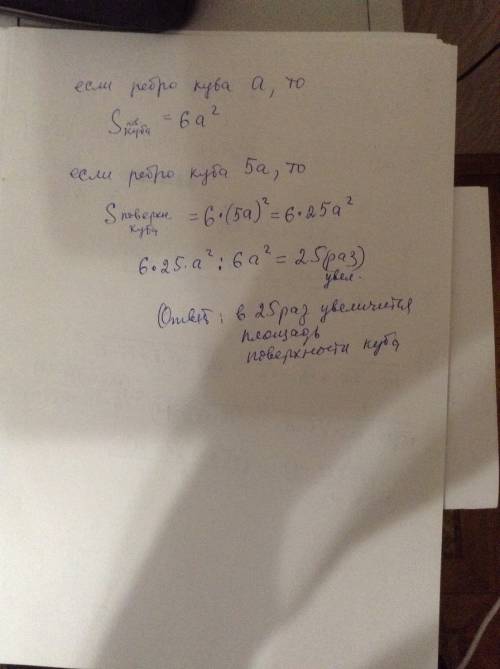 если ребро куба a, то
S пов. куба = 6a²
если ребро куба 5a, то
S поверхн. куба = 6•(5a)² = 6•25a²
6•25•a² : 6a² = 25(раз) увел.
Ответ: в 25 раз увеличится
площадь
поверхности куба